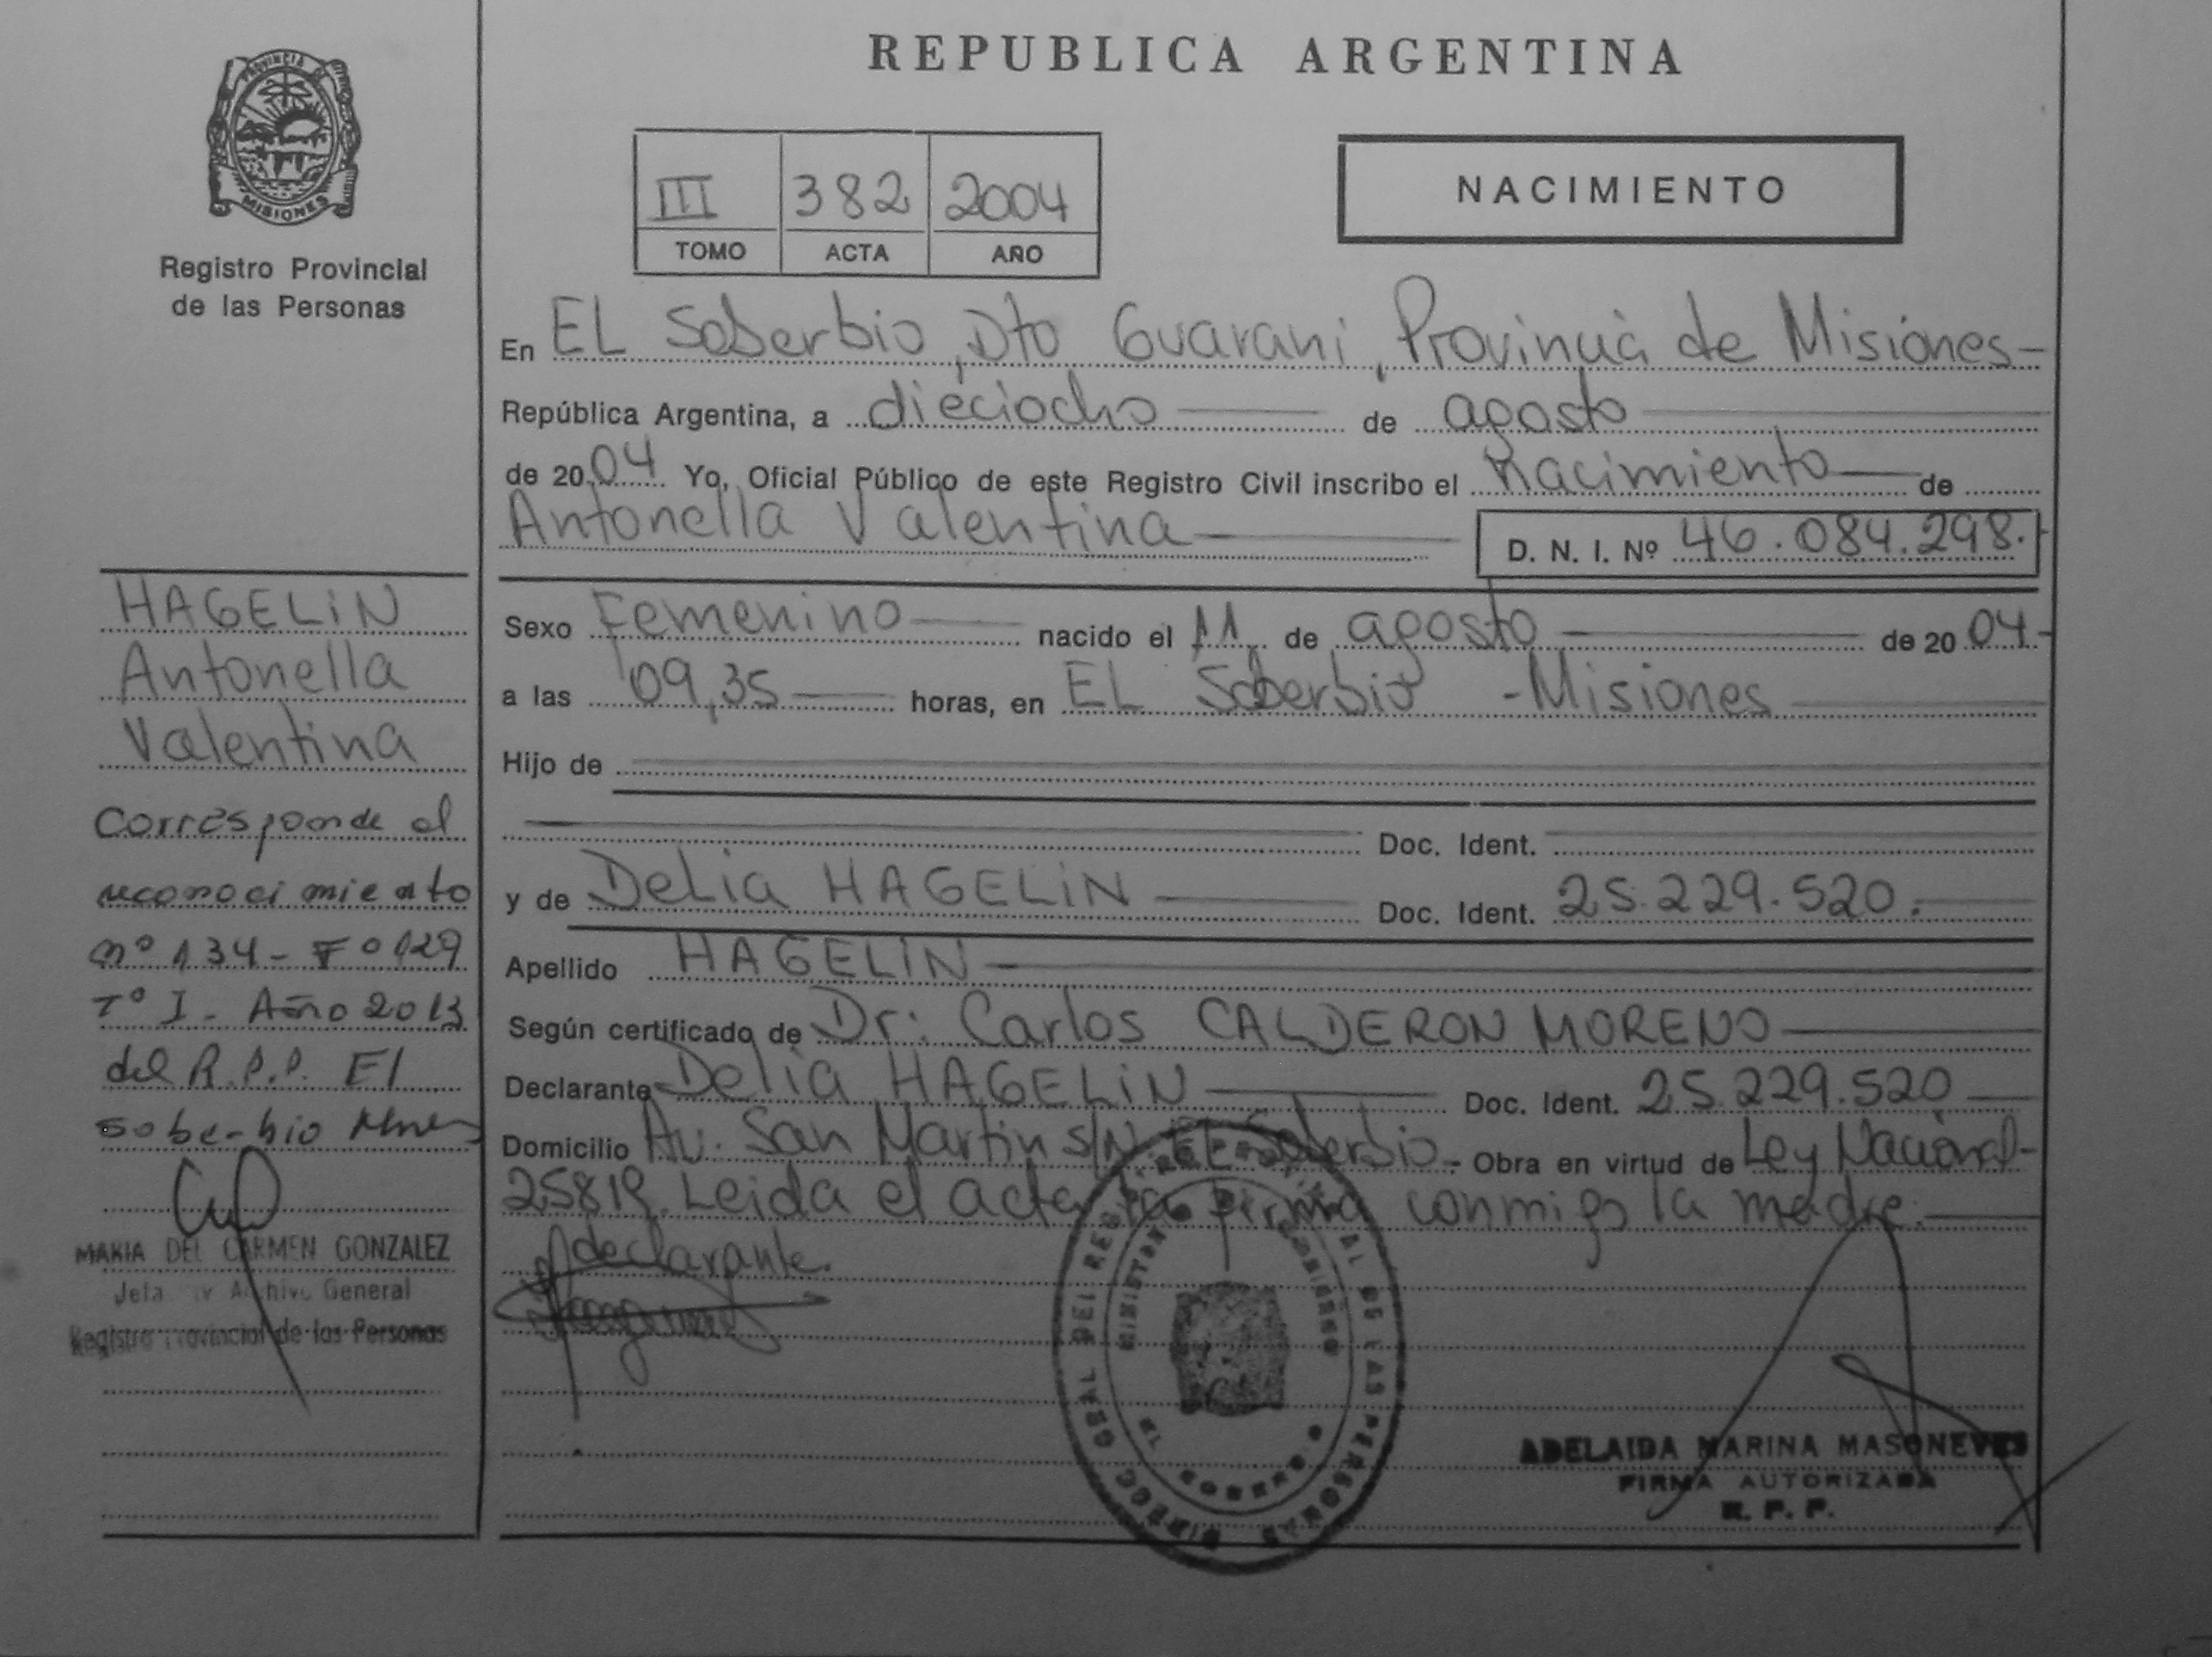 REPUBLICA ARGENTINA
PROVINCIA DE
MISIONES
Registro Provincial
de las Personas
III 382 2004
TOMO ACTA AÑO
NACIMIENTO
En EL Soberbio, Dto Guarani, Provincia de Misiones-
República Argentina, a dieciocho de agosto
de 2004 Yo, Oficial Público de este Registro Civil inscribo el Nacimiento de
Antonella Valentina
D. N. I. Nº 46.084.298.
Sexo Femenino nacido el 11 de agosto de 2004.-
a las 09,35 horas, en EL Soberbio - Misiones
Hijo de
Doc. Ident.
y de Delia HAGELIN Doc. Ident. 25.229.520.
Apellido HAGELIN
Según certificado de Dr: Carlos CALDERON MORENO
Declarante Delia HAGELIN Doc. Ident. 25.229.520
Domicilio Av. San Martin S/N EL Soberbio.- Obra en virtud de Ley Nacional-
25819. Leida el acta la firma conmigo la madre.
declarante.
HAGELIN
Antonella
Valentina
Corresponde al
reconocimiento
nº 134 - Fº 129
Tº I - Año 2013
del R.P.P. El
Soberbio Mnes
MARIA DEL CARMEN GONZALEZ
Archivo General
Registro Provincial de las Personas
DEL REGISTRO PROVINCIAL DE LAS PERSONAS
MINISTERIO GOBIERNO
ADELAIDA MARINA MASONEVES
FIRMA AUTORIZADA
R. P. P.